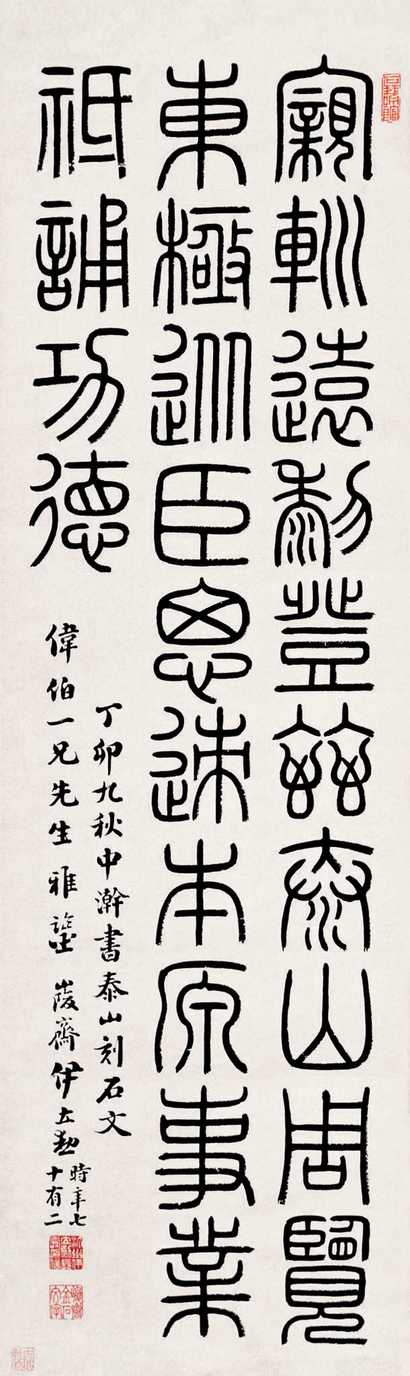 寴遠黎登茲泰山周覽
東極從臣思迹本原事業
祗誦功德
丁卯九秋中澣書泰山刻石文
偉伯一兄先生雅鑒 峻齋伊立勳 時年七
十有二